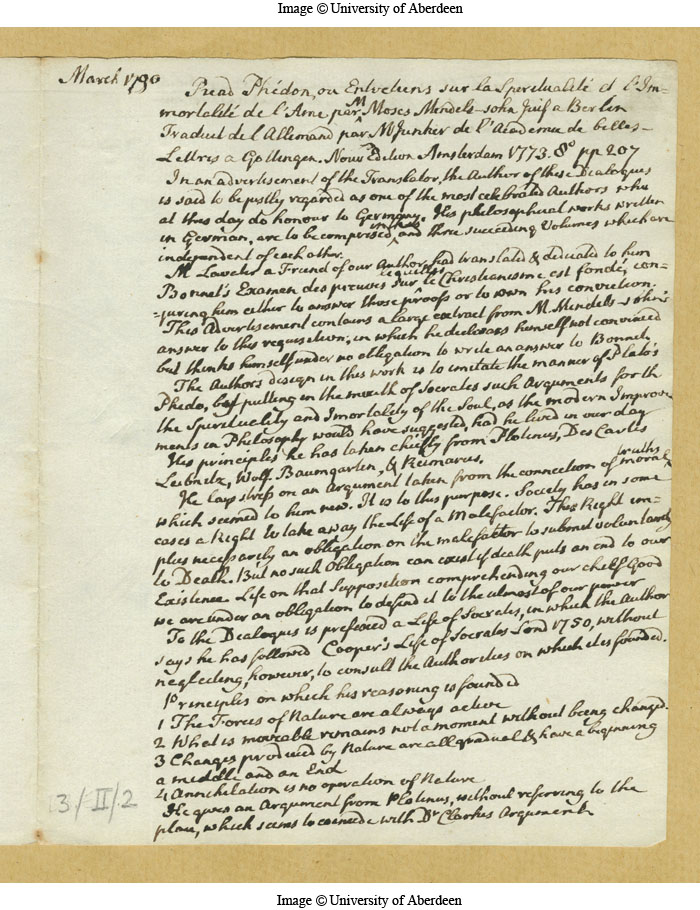 Image © University of Aberdeen
March 1790
Read Phédon, ou Entretiens sur la Spiritualité et l'Im-
mortalité de l'Ame par M Moses Mendels-sohn Juif a Berlin
Traduit de l'Allemand par M Junker de l'Academie de belles-
Lettres a Gottingen. Nouv Edition Amsterdam 1773. 8o pp 207
In an advertisement of the Translator, the Author of these Dialogues
is said to be justly regarded as one of the most celebrated Authors who
at this day do honour to Germany. His philosophical works written
in German, are to be comprised in this and three succeeding Volumes which are
independent of each other.
M Lavater a Friend of our Author, had translated & dedicated to him
Bonnet's Examen des preuves sur lequelles le Christianisme est fondé, con-
-juring him either to answer those proofs or to own his conviction.
This Advertisement contains a large extract from M. Mendels-sohn's
answer to this requisition; in which he declares himself not convinced
but thinks himself under no obligation to write an answer to Bonnet.
The Authors design in this work is to imitate the manner of Plato's
Phedo, by putting in the mouth of Socrates such Arguments for the
the Spirituality and Imortality of the Soul, as the modern Improve
ments in Philosophy would have suggested, had he lived in our day
His principles he has taken chiefly from Plotinus, Des Cartes
Leibnitz, Wolf, Baumgarten, & Reimarus.
He lays stress on an Argument taken from the connection of moral truths
which seemed to him new. It is to this purpose. Society has in some
cases a Right to take away the Life of a Malefactor. This Right im-
plies necessarily an obligation on the malefactor to submit voluntarily
to Death. But no such Obligation can exist if death puts an end to our
Existence. Life on that Supposition comprehending our chief Good
we are under an obligation to defend it to the utmost of our power
To the Dialogues is prefixed a Life of Socrates, in which the Author
says he has followed Cooper's Life of Socrates Lond 1750, without
neglecting, however, to consult the Authorities on which it is founded.
Principles on which his reasoning is founded
1 The Forces of Nature are always active
2 What is moveable remains not a moment without being changed.
3 Changes produced by Nature are all gradual & have a beginning
a middle and an End
4 Annihilation is no operation of Nature
He gives an Argument from Plotinus, without referring to the
place, which seems to coincide with Dr Clarkes Argument
3/II/2
Image © University of Aberdeen